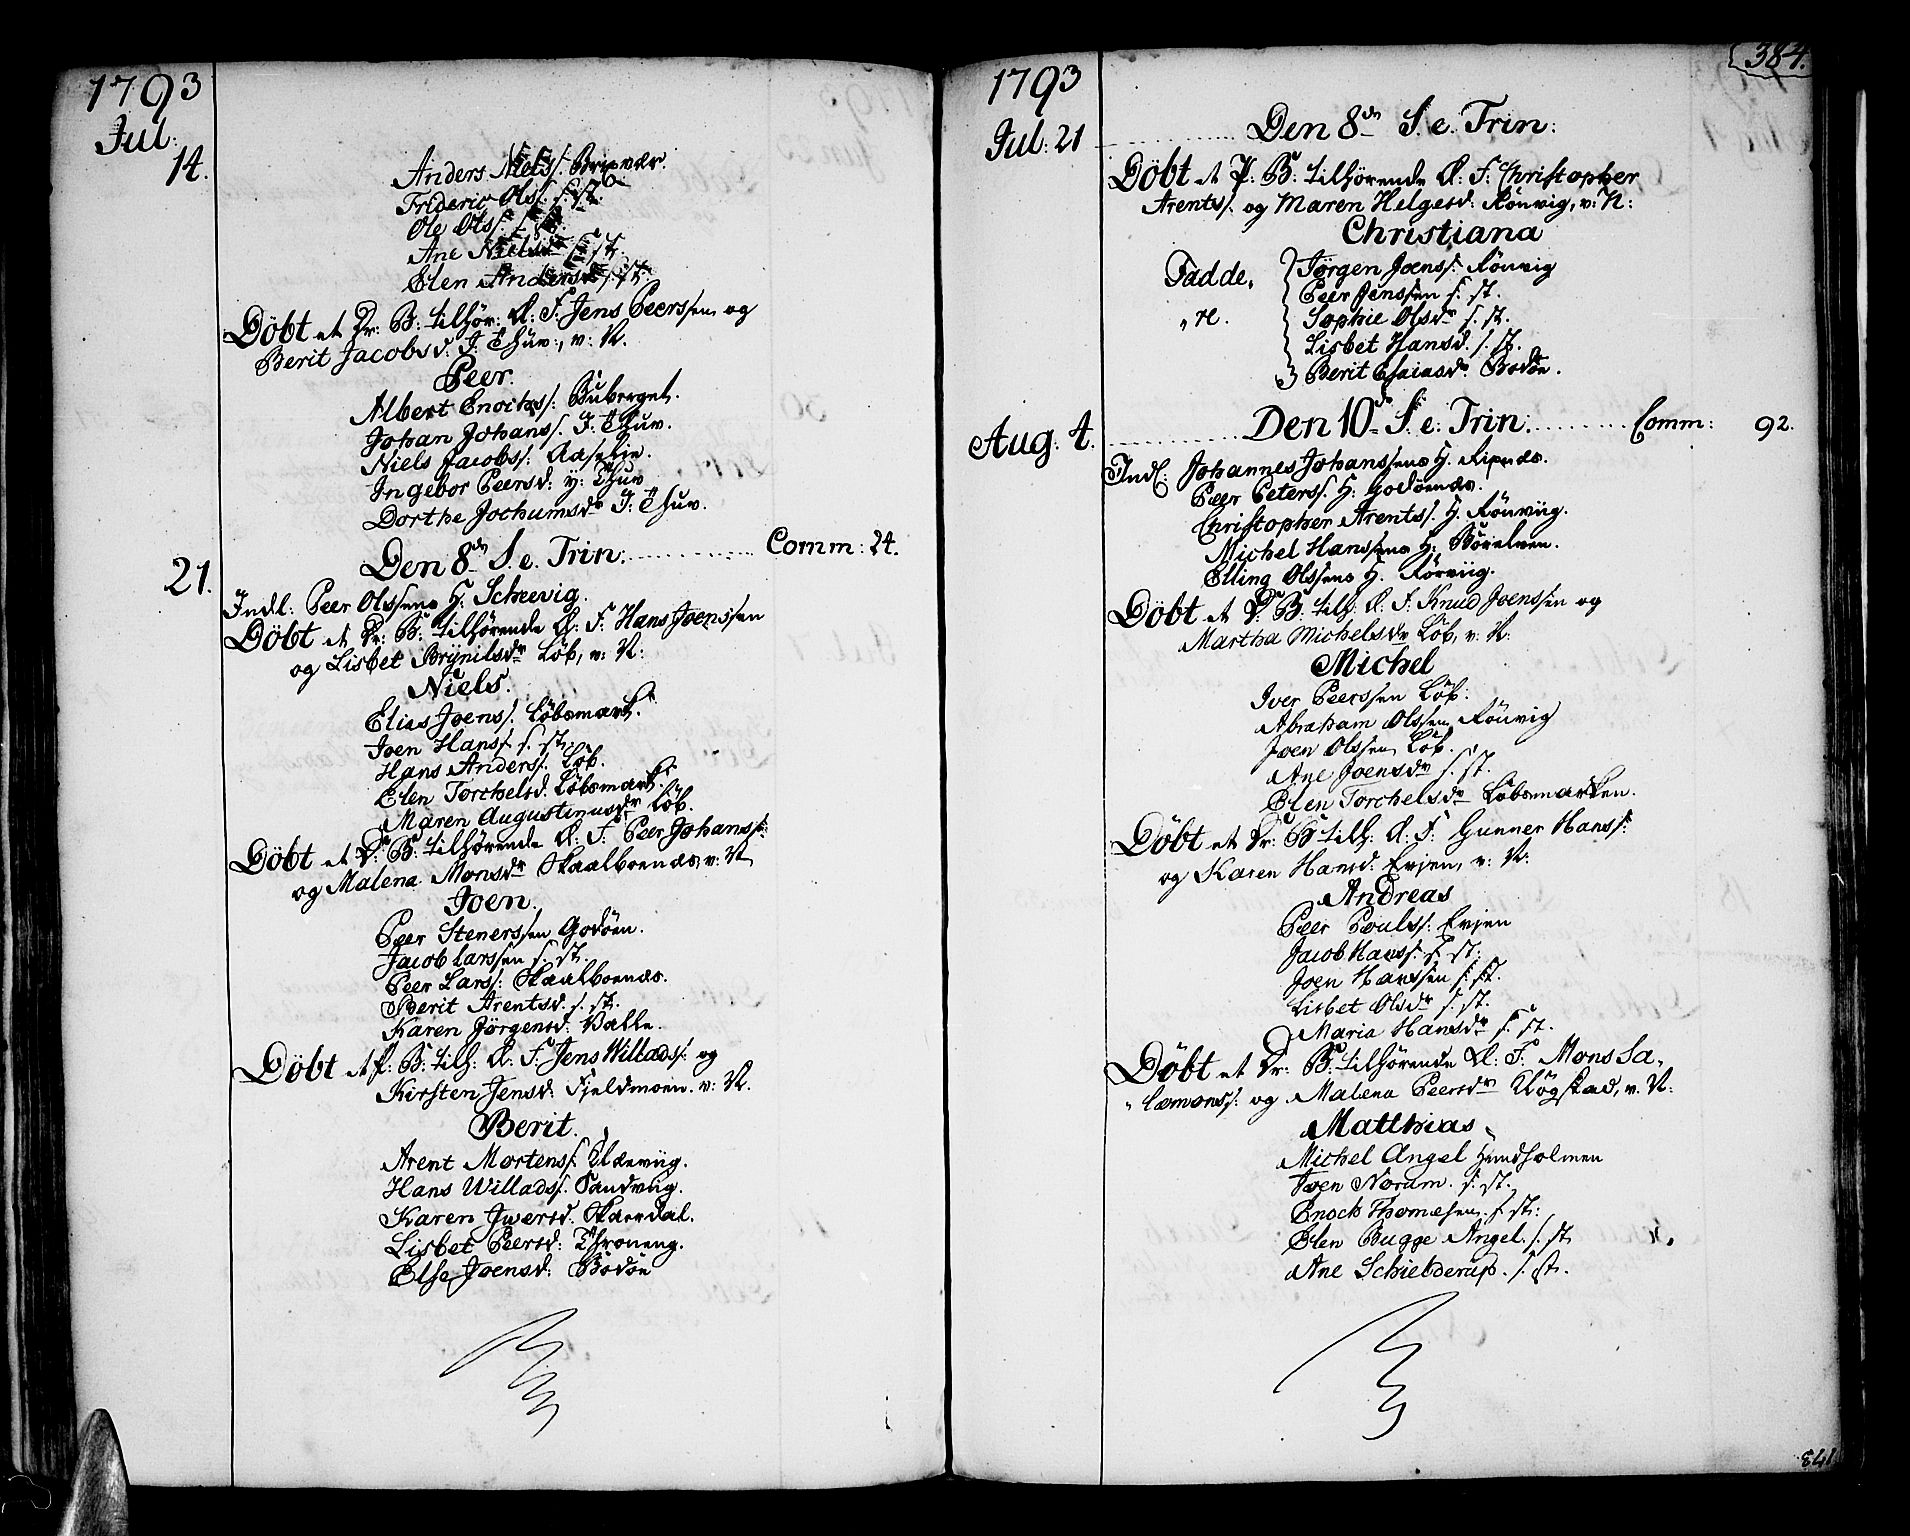 1793
Jul:
14.
Anders Niels/:
Frideric Ols/: s: st:
Ole Ols/:
Ane Nielsdr s: st.
Elen Andersdr s: st.
Döbt et Dr: B: tilhör: Æ: F. Jens Peerssen og
Berit Jacobsd: I: Thuv:, v: N.
Peer.
Albert Enochs/:
Johan Johans/. I: Thuv.
Niels Jacobs/:
Ingebor Peersd: y: Thuv
Dorthe Jochumsdr I: Thuv.
21.
Den 8de S. e. Trin: ............ Comm: 24.
Indl: Peer Olssens H: Scheevig.
Döbt et Dr: B: tilhörende Æ: F. Hans Joenssen
og Lisbet Brÿnilsdr Löb, v: N:
Niels.
Elias Joens/: Löbsmark.
Joen Hans/: s. st:
Hans Anders/. Löb.
Elen Torchelsd. Löbsmark.
Maren Augustinusdr Löb.
Döbt et Dr: B: tilhörende Æ: F. Peer Johans/:
og Malena Monsdr Skaalboenæs, v: N
Joen.
Peer Stenerssen Godöen.
Jacob Larssen s. st.
Peer Lars/: Skaalboenæs.
Berit Arentsd. s. st.
Karen Jörgensd: Valle.
Döbt et P: B: tilh: Æ: F. Jens Willads/: og
Kirsten Jensd: Fjeldmoen. v: N.
Berit.
Arent Mortens/: Klæviig.
Hans Willads/. Sandviig.
Karen Iwersd: Skaerdal.
Lisbet Peersd: Throneng.
Else Joensd: Bodöe
384.
1793
Jul: 21
.......... Den 8de S. e. Trin:
Döbt et P: B: tilhörende Æ: F: Christopher
Arents/: og Maren Helgesd: Rönvig, v: N:
Christiana
Fadde, Jörgen Joens/: Rönvig
Peer Jenssen s. st.
„re. Sophie Olsdr s. st.
Lisbet Hansd. s. st.
Berit Esaiasdr Bodöe.
Aug. 4.
.............. Den 10de S. e: Trin: .......... Comm: 92.
Indl: Johannes Johanssens H. Ripnæs.
Peer Peters/. H: Godöenæs.
Christopher Arents/. H. Rönviig.
Michel Hanssens H: Börelven.
Elling Olssens H. Rörviig.
Döbt et Dr: B: tilh: Æ: F. Knud Joenssen og
Martha Michelsdr Löb, v: N:
Michel
Iver Peerssen Löb:
Abraham Olssen Rönvig
Joen Olssen Löb.
Ane Joensdr s. st.
Elen Torchelsdr Löbsmarken.
Döbt et Dr: B: tilh: Æ. F. Gunner Hans/:
og Karen Hansd: Evjen, v: N:
Andreas
Peer Pouls/: Evjen
Jacob Hans/: s. st:
Joen Hanssen s: st.
Lisbet Olsdr s. st.
Maria Hansdr s. st.
Döbt et Dr: B: tilhörende Æ: F: Mons Sa„
„læmons/: og Malena Peersdr Klögstad, v. N:
Matthias
Michel Angel Hundholmen
Joen Noram. s. st.
Enock Thomesen. s st:
Elen Bugge Angel. s. st
Ane Schielderup. s. st.